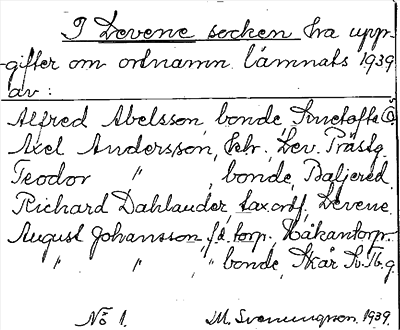 I Levene socken ha upp-
gifter om ortnamn lämnats 1939
av:
Alfred Abelsson bonde Snetofta Ö.
Axel Andersson, Lev. Prästg.
Teodor " , bonde, Baljered
Richard Dahlander, tax.ordf, Levene
August Johansson, f.d. torp., Håkantorp
" " , " bonde, Skår St. g.
No 1. M. Svenungsson. 1939.